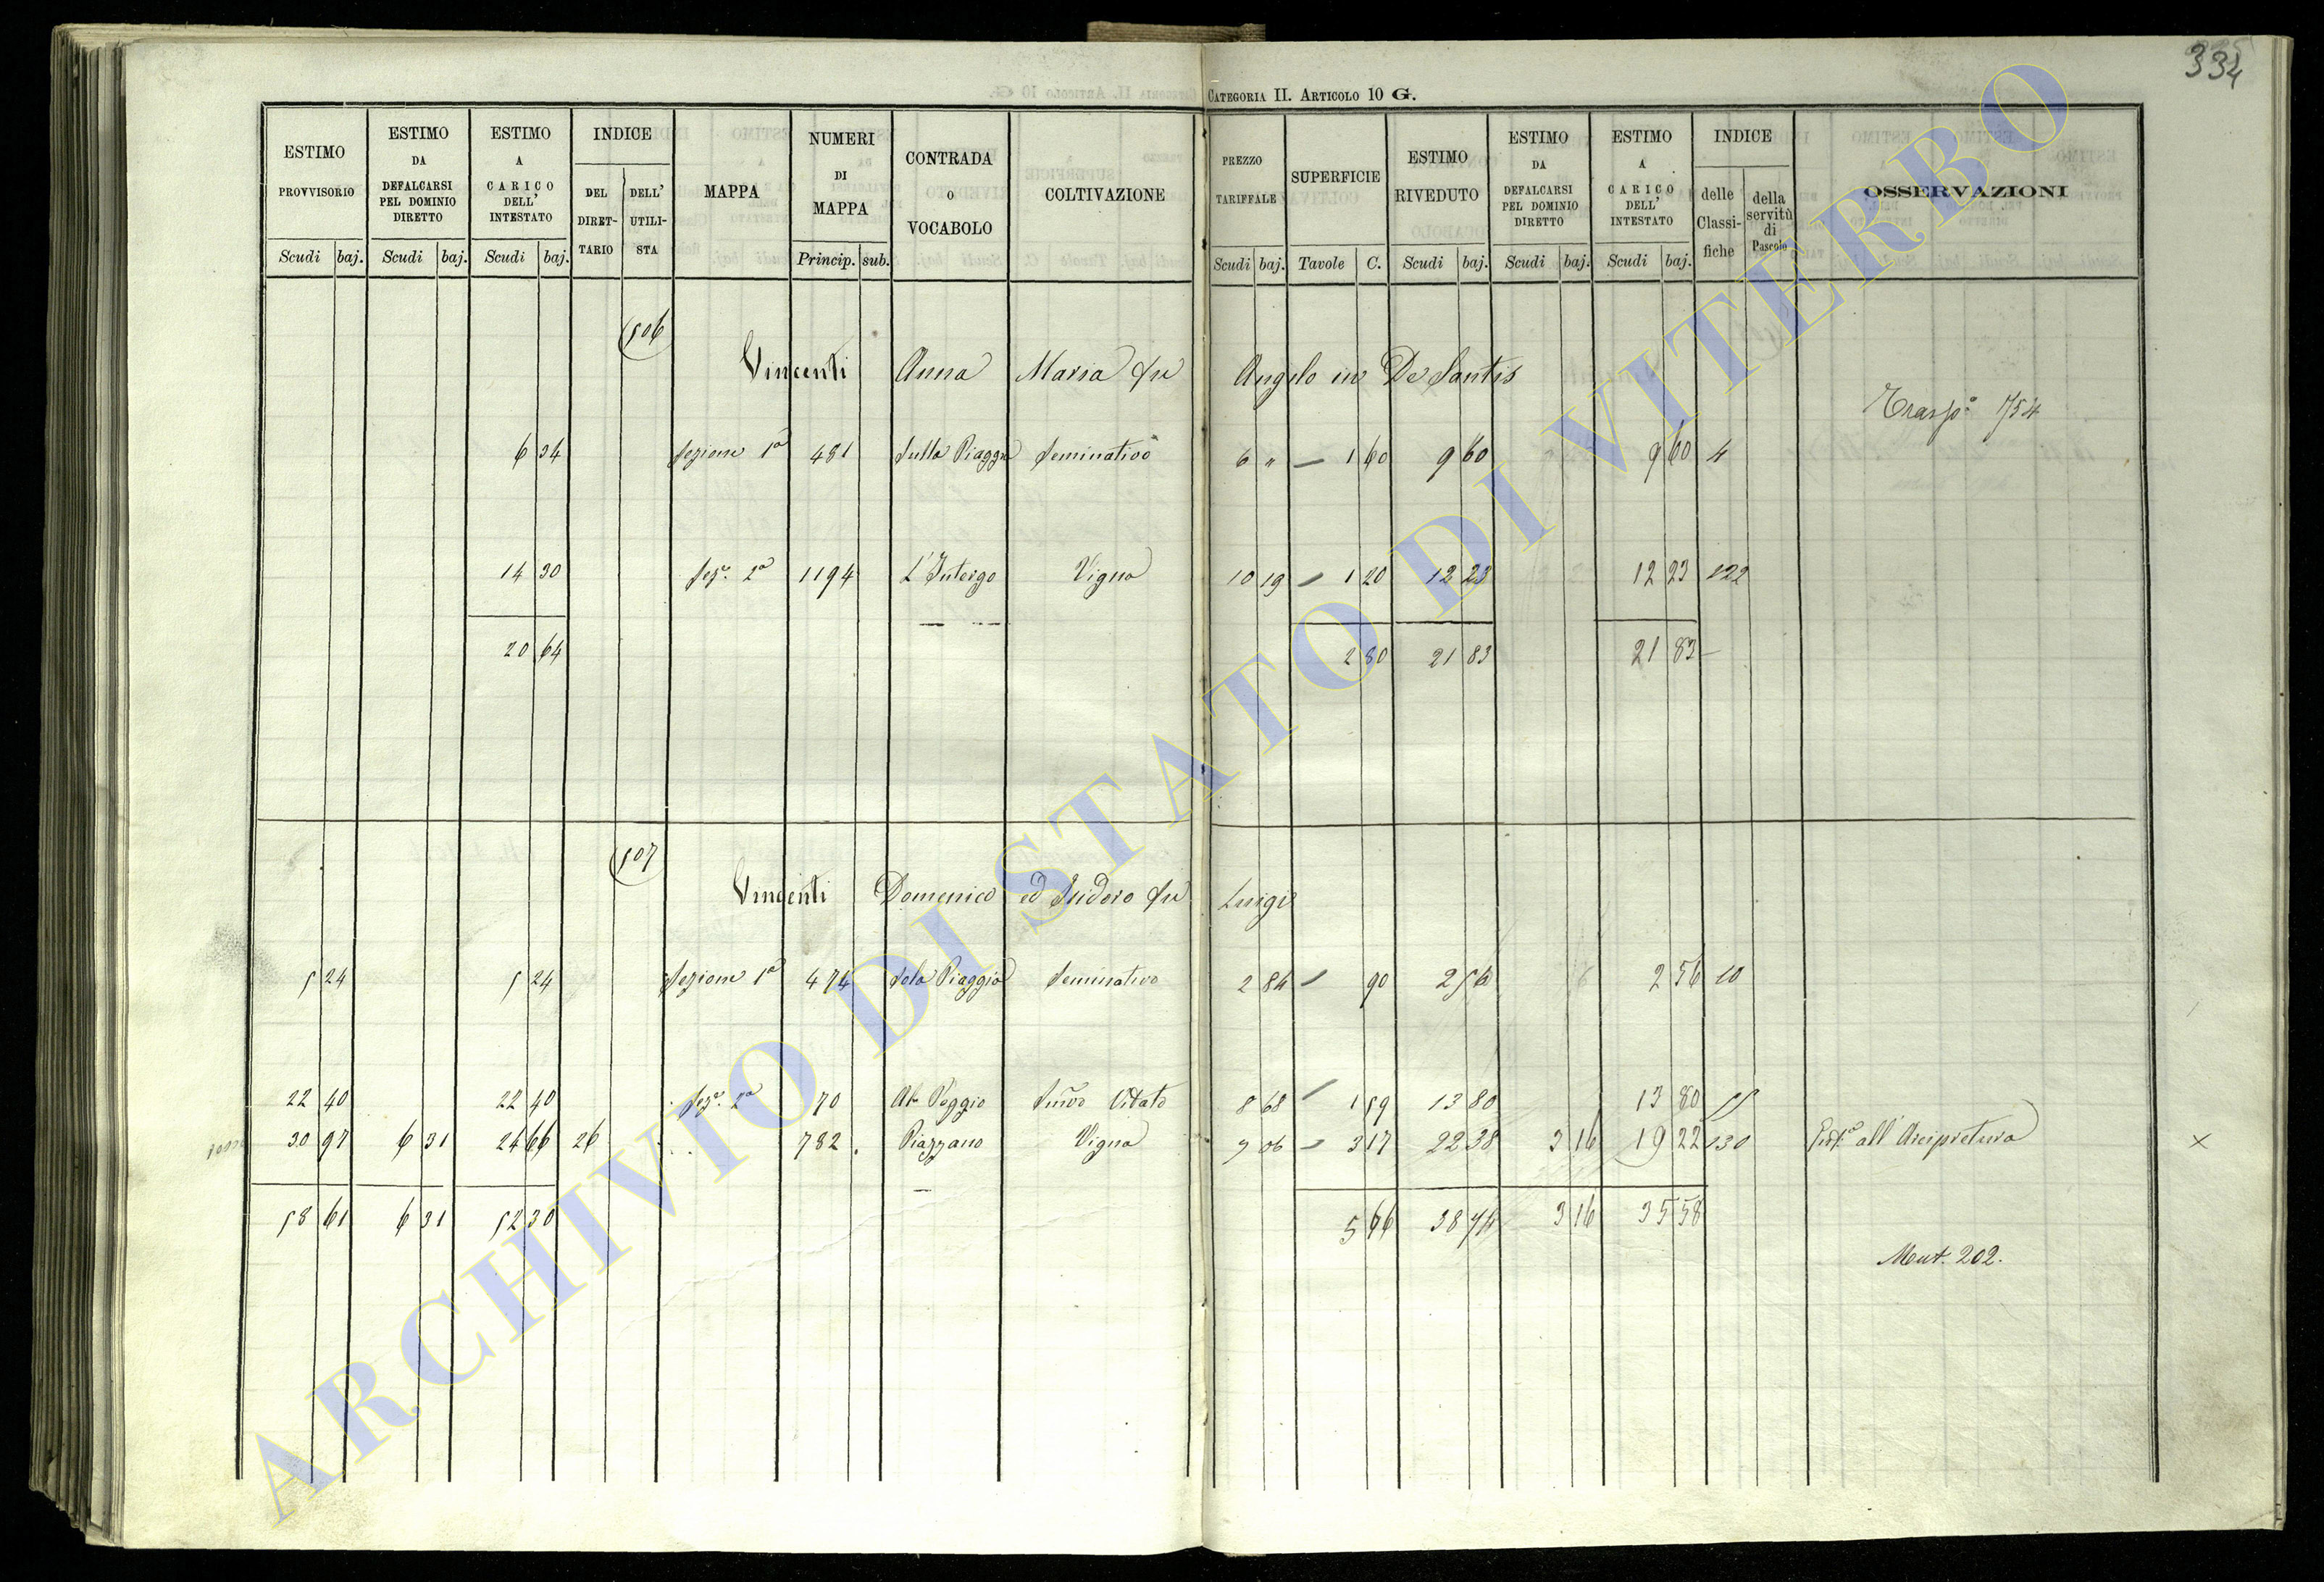 334
CATEGORIA II. ARTICOLO 10 G.
ESTIMO PROVVISORIO Scudi baj.
ESTIMO DA DEFALCARSI PEL DOMINIO DIRETTO Scudi baj.
ESTIMO A CARICO DELL' INTESTATO Scudi baj.
INDICE DEL DIRETTARIO DELL' UTILISTA
MAPPA
NUMERI DI MAPPA Princip. sub.
CONTRADA O VOCABOLO
COLTIVAZIONE
PREZZO TARIFFALE Scudi baj.
SUPERFICIE Tavole C.
ESTIMO RIVEDUTO Scudi baj.
ESTIMO DA DEFALCARSI PEL DOMINIO DIRETTO Scudi baj.
ESTIMO A CARICO DELL' INTESTATO Scudi baj.
INDICE delle Classifiche della servitù di Pascolo
OSSERVAZIONI
506
Vincenti Anna Maria fu Angelo in De Santis
Trasp.o 754
6 34 Sezione 1a 481 Sulla Piaggia Seminativo 6 " 1 60 9 60 9 60 4
14 30 Sez.e 2a 1194 L'Intergo Vigna 10 19 1 20 12 23 12 23 122
20 64 2 80 21 83 21 83
507
Vincenti Domenico ed Isidoro fu Luigi
5 24 5 24 Sezione 1a 474 Sola Piaggia Seminativo 2 84 90 2 56 2 56 10
22 40 22 40 Sez.e 2a 70 Al Poggio Vitato 8 68 1 59 13 80 13 80 55
30 97 6 31 24 66 26 782 Piazzano Vigna 7 06 3 17 22 38 3 16 19 22 130 all' Arcipretura ×
58 61 6 31 52 30 5 66 38 74 3 16 35 58
Mut. 202.
ARCHIVIO DI STATO DI VITERBO